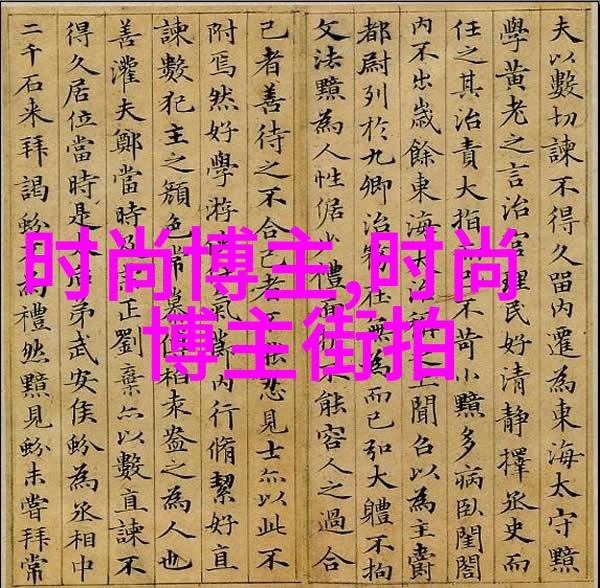 夫以數切諫不得久留內遷為東海太守黯
學黃老之言治官理民好清靜擇丞史而
任之其治責大指不苛小黯多病臥閨閤
內不出歲餘東海大治稱之上聞召以為主爵
都尉列於九卿治務在無為而已弘大體不拘
文法黯為人性倨少禮面折不能容人之過合
己者善待之不合己者不能忍見士亦以此不
附焉然好學游俠氣內行脩絜好直
諫數犯主之顏色常慕傅柏袁盎之為人也
善灌夫鄭當時及正劉棄亦以數直諫不
得久居位當時是弟武安侯蚡為丞相中
二千石來拜謁蚡不為禮然黯見蚡未嘗拜常
时尚博主,时尚
博主街拍